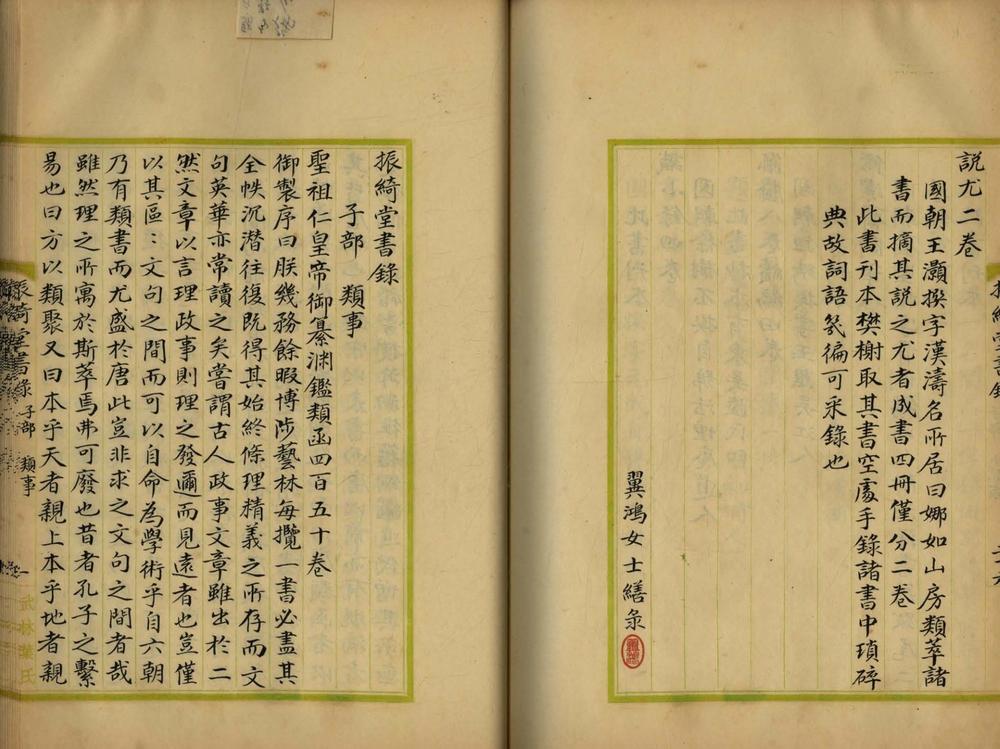 說尤二卷
國朝王灝撰字漢濤名所居曰娜如山房類萃諸
書而摘其說之尤者成書四冊僅分二卷
此書刊本樊榭取其書空處手錄諸書中瑣碎
典故詞語幾徧可采錄也
翼鴻女士繕彔
振綺堂書錄
子部 類事
聖祖仁皇帝御纂淵鑑類函四百五十卷
御製序曰朕幾務餘暇博涉藝林每攬一書必盡其
全帙沉潛往復既得其始終條理精義之所存而文
句英華亦常讀之矣嘗謂古人政事文章雖出於二
然文章以言理政事則理之發邇而見遠者也豈僅
以其區〻文句之間而可以自命為學術乎自六朝
乃有類書而尤盛於唐此豈非求之文句之間者哉
雖然理之所寓於斯萃焉弗可廢也昔者孔子之繫
易也曰方以類聚又曰本乎天者親上本乎地者親
振綺堂書錄 子部 類事
武林葉氏